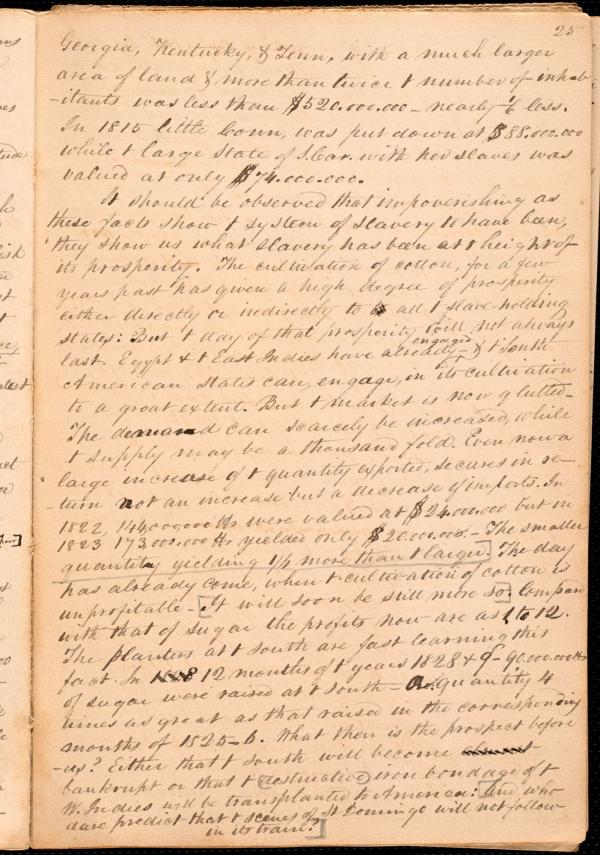 25
Georgia, Kentucky, & Tenn, with a much larger
area of land & more than twice t number of inhab-
-itants was less than $520.000.000 - nearly 1/6 less.
In 1815 little Conn, was put down at $88.000.000
while t large State of S.Car. with her slaves was
valued at only $74.000.000.
It should be observed that impoverishing as
these facts show t system of slavery to have been,
they show us what slavery has been at t height of
its prosperity. The cultivation of cotton, for a few
years past has given a high degree of prosperity
either directly or indirectly to all t slave-holding
states: But t day of that prosperity will not always
last. Egypt & t East Indies have already engaged & t South
American states can, engage, in its cultivation
to a great extent. But t market is now glutted-
The demand can scarcely be increased, while
t supply may be a thousand fold. Even now a
large increase of t quantity exported, secures in re-
-turn not an increase but a decrease of imports. In
1822, 144,000000 lbs were valued at $24.000.000 but in
1823 173,000.000 lbs yielded only $20.000.000. - The smaller
quantity yielding 1/6 more than t larger. The day
has already come, when t cultivation of cotton is
unprofitable - [It will soon be still more so] Compare
with that of sugar the profits now are as 1 to 12.
The planters at t south are fast learning this
fact. In 12 months of t years 1828 & 9 - 90.000.000 lbs
of sugar were raised at t south - A quantity 4
times as great as that raised in the corresponding
months of 1825-6. What then is the prospect before
-us? Either that t south will become
bankrupt or that t destructive iron bondage of t
W. Indies will be transplanted to America: [and who
dare predict that t scenes of St Domingo will not follow
in its train?]